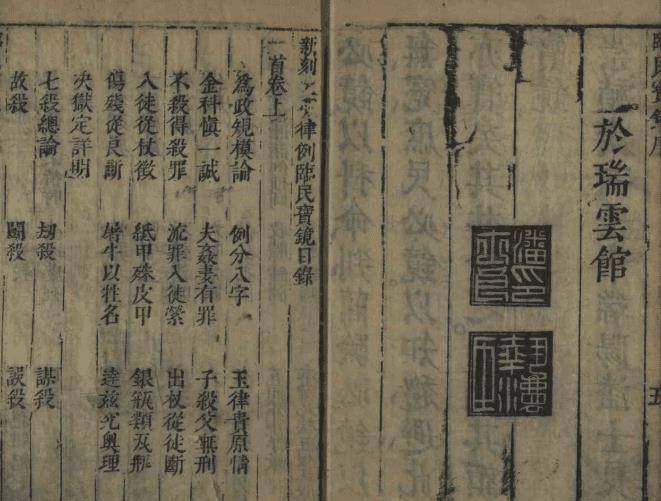 於瑞雲館
五
新刻 律例臨民寶鏡目錄
首卷上
爲政規模論 例分八字 玉律貴原情
金科慎一誠 夫姦妻有罪 子殺父無刑
不殺得殺罪 流罪入徒縈 出杖從徒斷
入徒從杖徵 紙甲殊皮甲 銀瓶類瓦瓶
傷殘從良斷 屠牛以牲名 達茲究奧理
決獄定詳明
七殺總論 劫殺 謀殺
故殺 鬬殺 誤殺